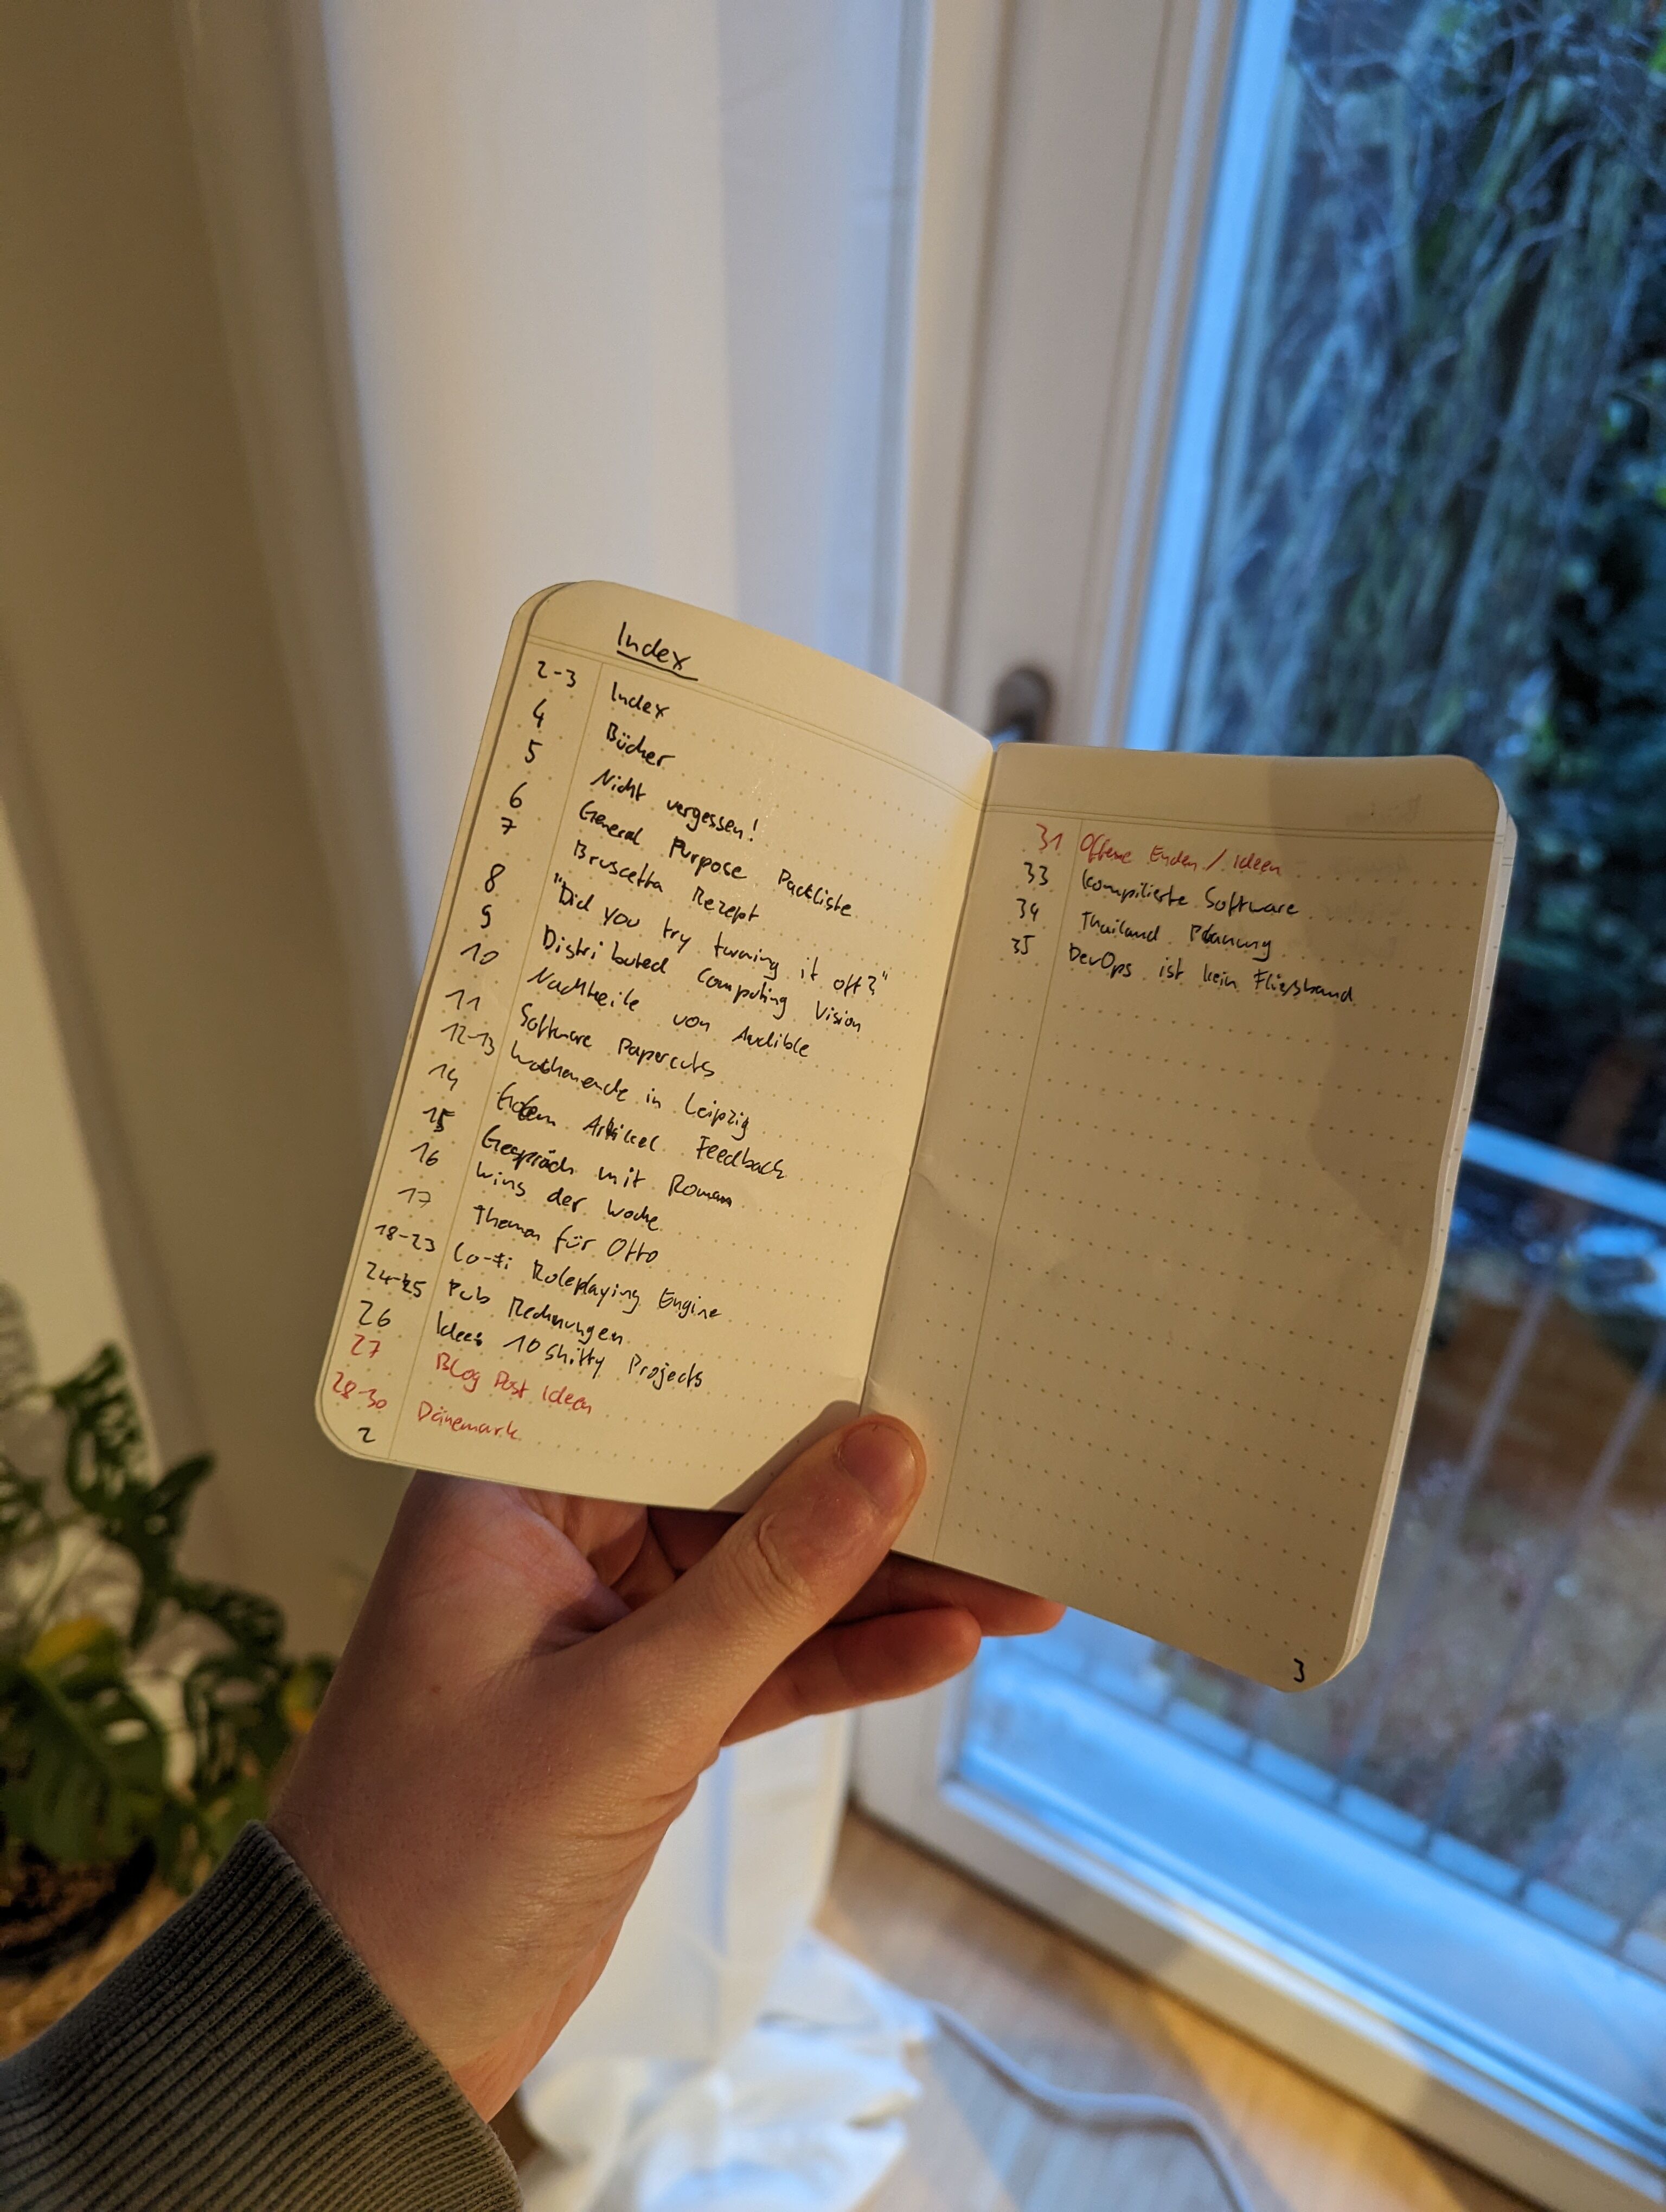 Index
2-3 Index
4 Bücher
5 Nicht vergessen!
6 General Purpose Packliste
7 Bruscetta Rezept
8 "Did you try turning it off?"
9 Distributed Computing Vision
10 Nachteile von Audible
11 Software Papercuts
12-13 Wochenende in Leipzig
14 Artikel Feedback
15 Gespräch mit Roman
16 Wins der Woche
17 Themen für Otto
18-23 Lo-Fi Roleplaying Engine
24-25 Pub Rechnungen
26 10 Shitty Projects
27 Blog Post Ideen
28-30 Dänemark
2
31 Offene Enden / Ideen
33 Kompilierte Software
34 Thailand Planung
35 DevOps ist kein Fließband
3